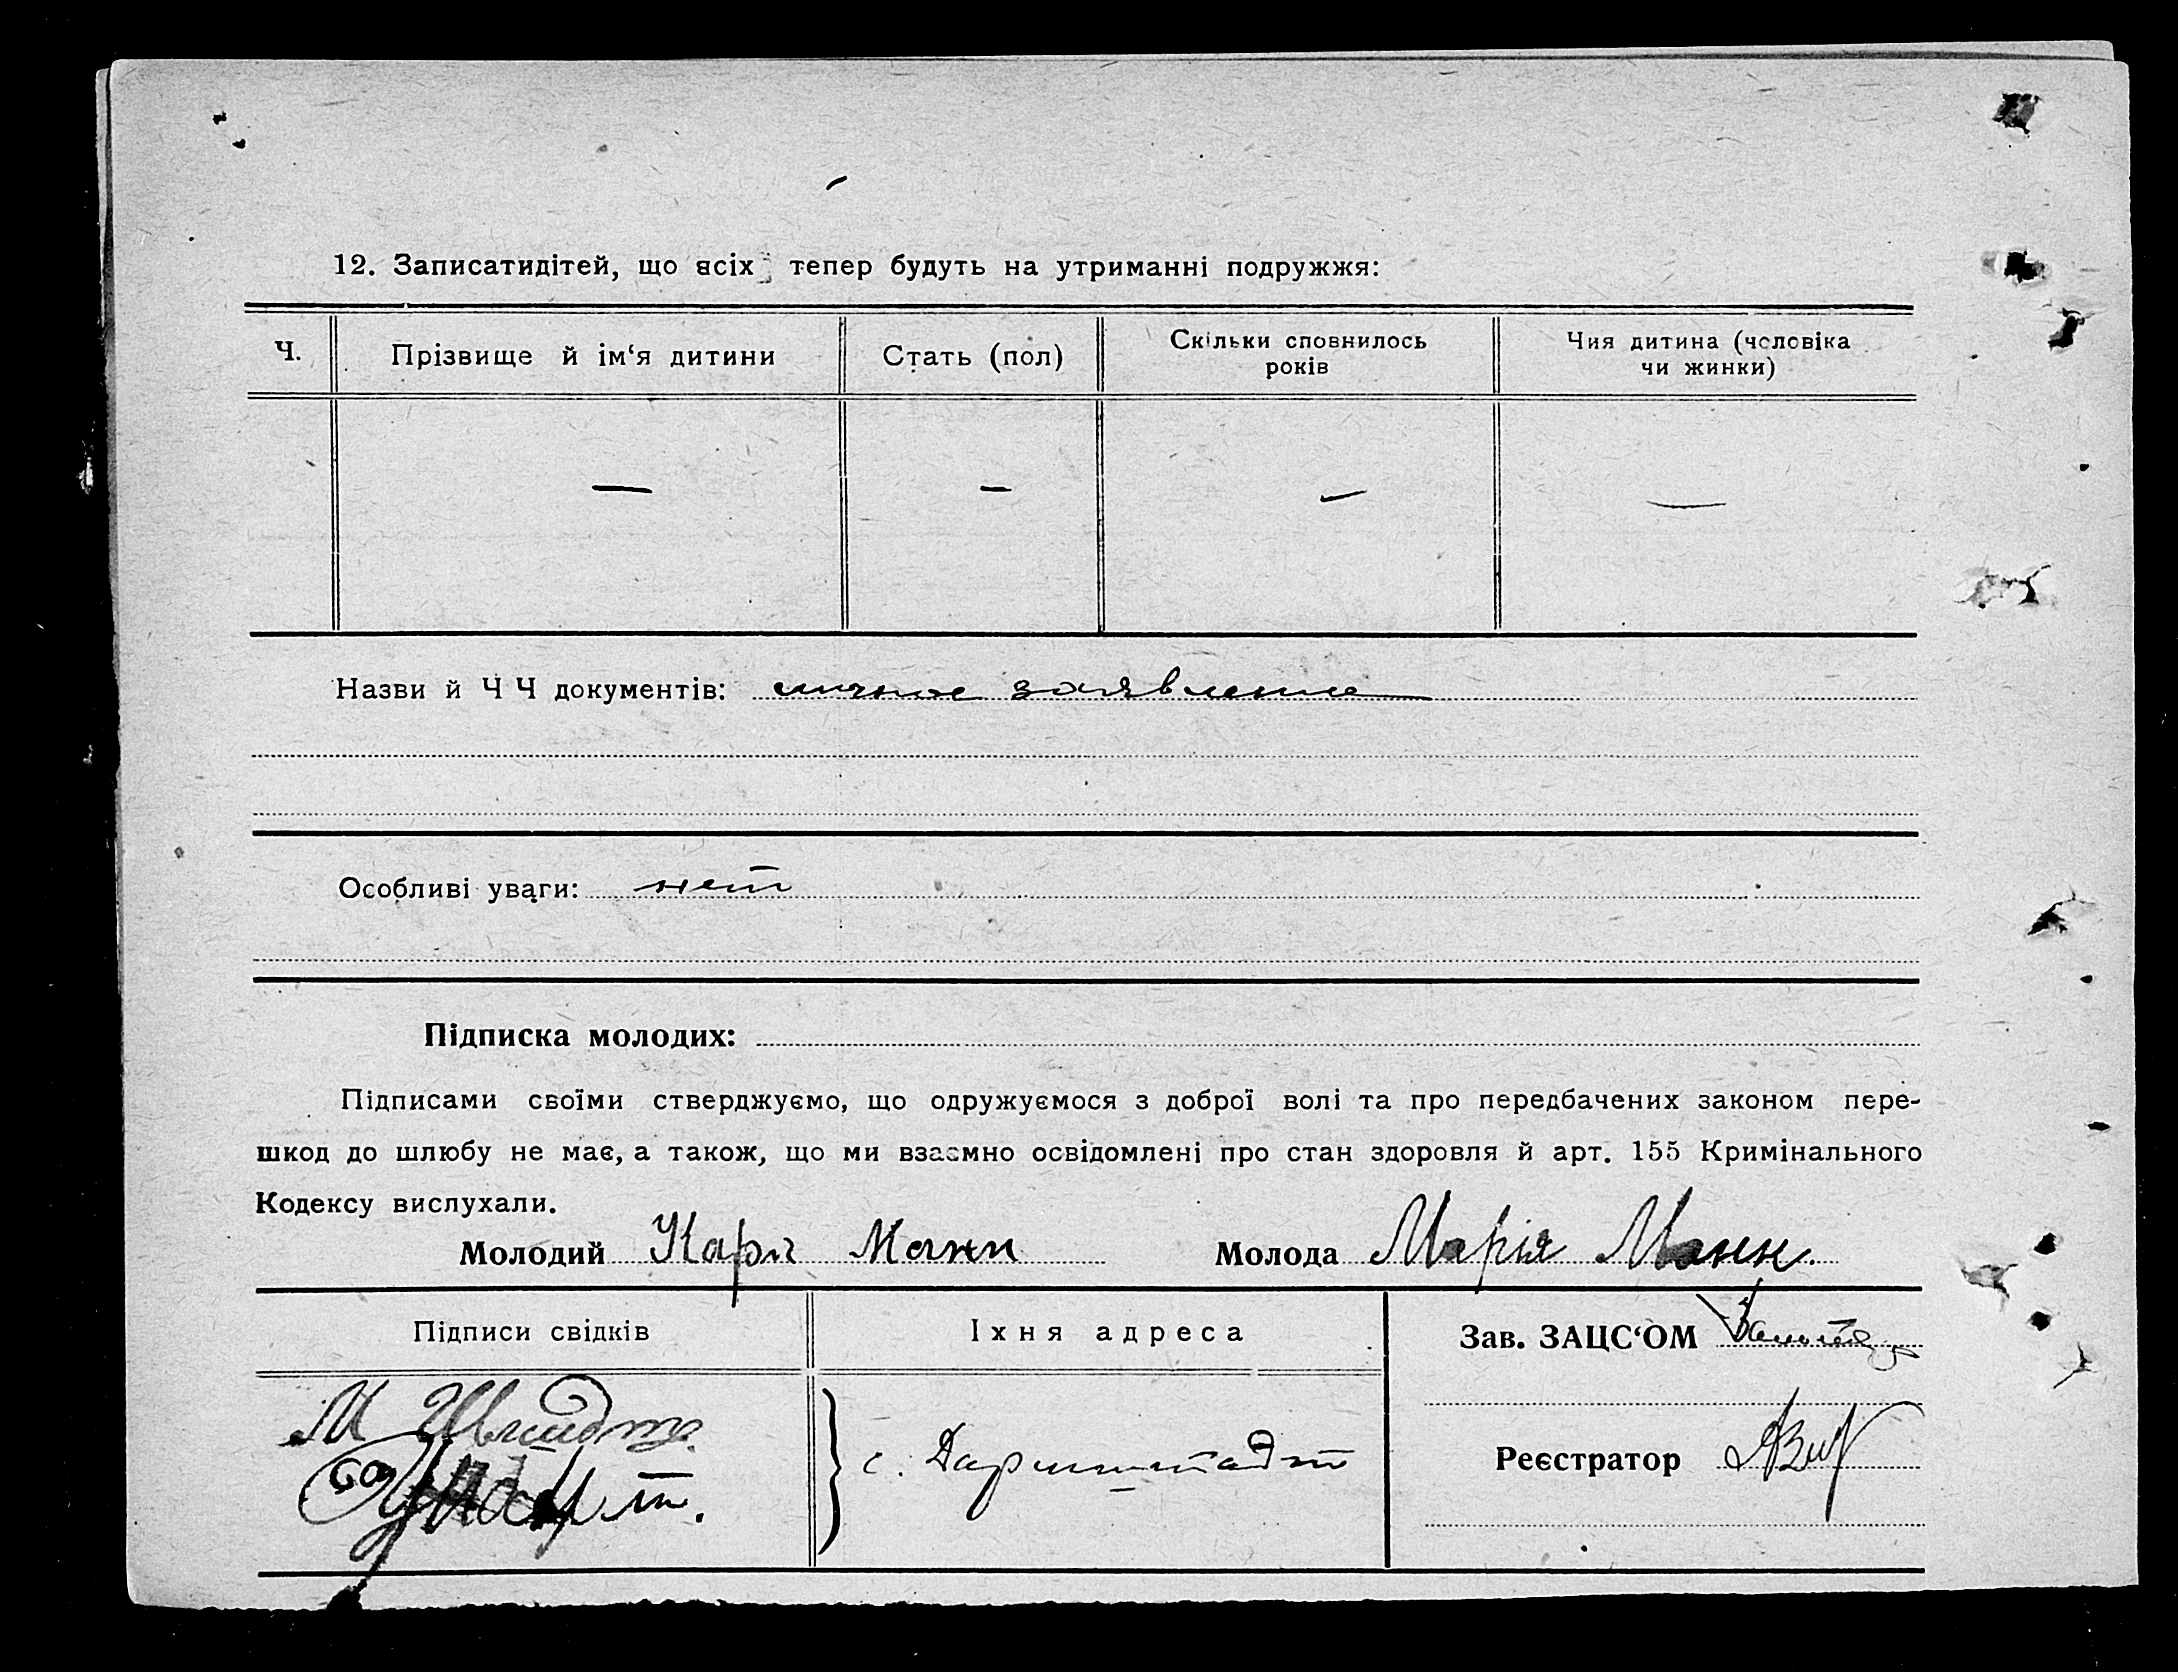 12. Записатидітей, що всіх тепер будуть на утриманні подружжя:
Ч.
Прізвище й ім‘я дитини
Стать (пол)
Скільки сповнилось років
Чия дитина (чоловіка чи жинки)
— — — —
Назви й ЧЧ документів: личное заявление
Особливі уваги: нет
Підписка молодих:
Підписами своїми стверджуємо, що одружуємося з доброї волі та про передбачених законом пере-
шкод до шлюбу не має, а також, що ми взаємно освідомлені про стан здоровля й арт. 155 Кримінального
Кодексу вислухали.
Молодий Карл Манн Молода Марія Манн.
Підписи свідків
Їхня адреса
Зав. ЗАЦС‘ОМ
М Шмидт.
с. Дармштадт
Реєстратор